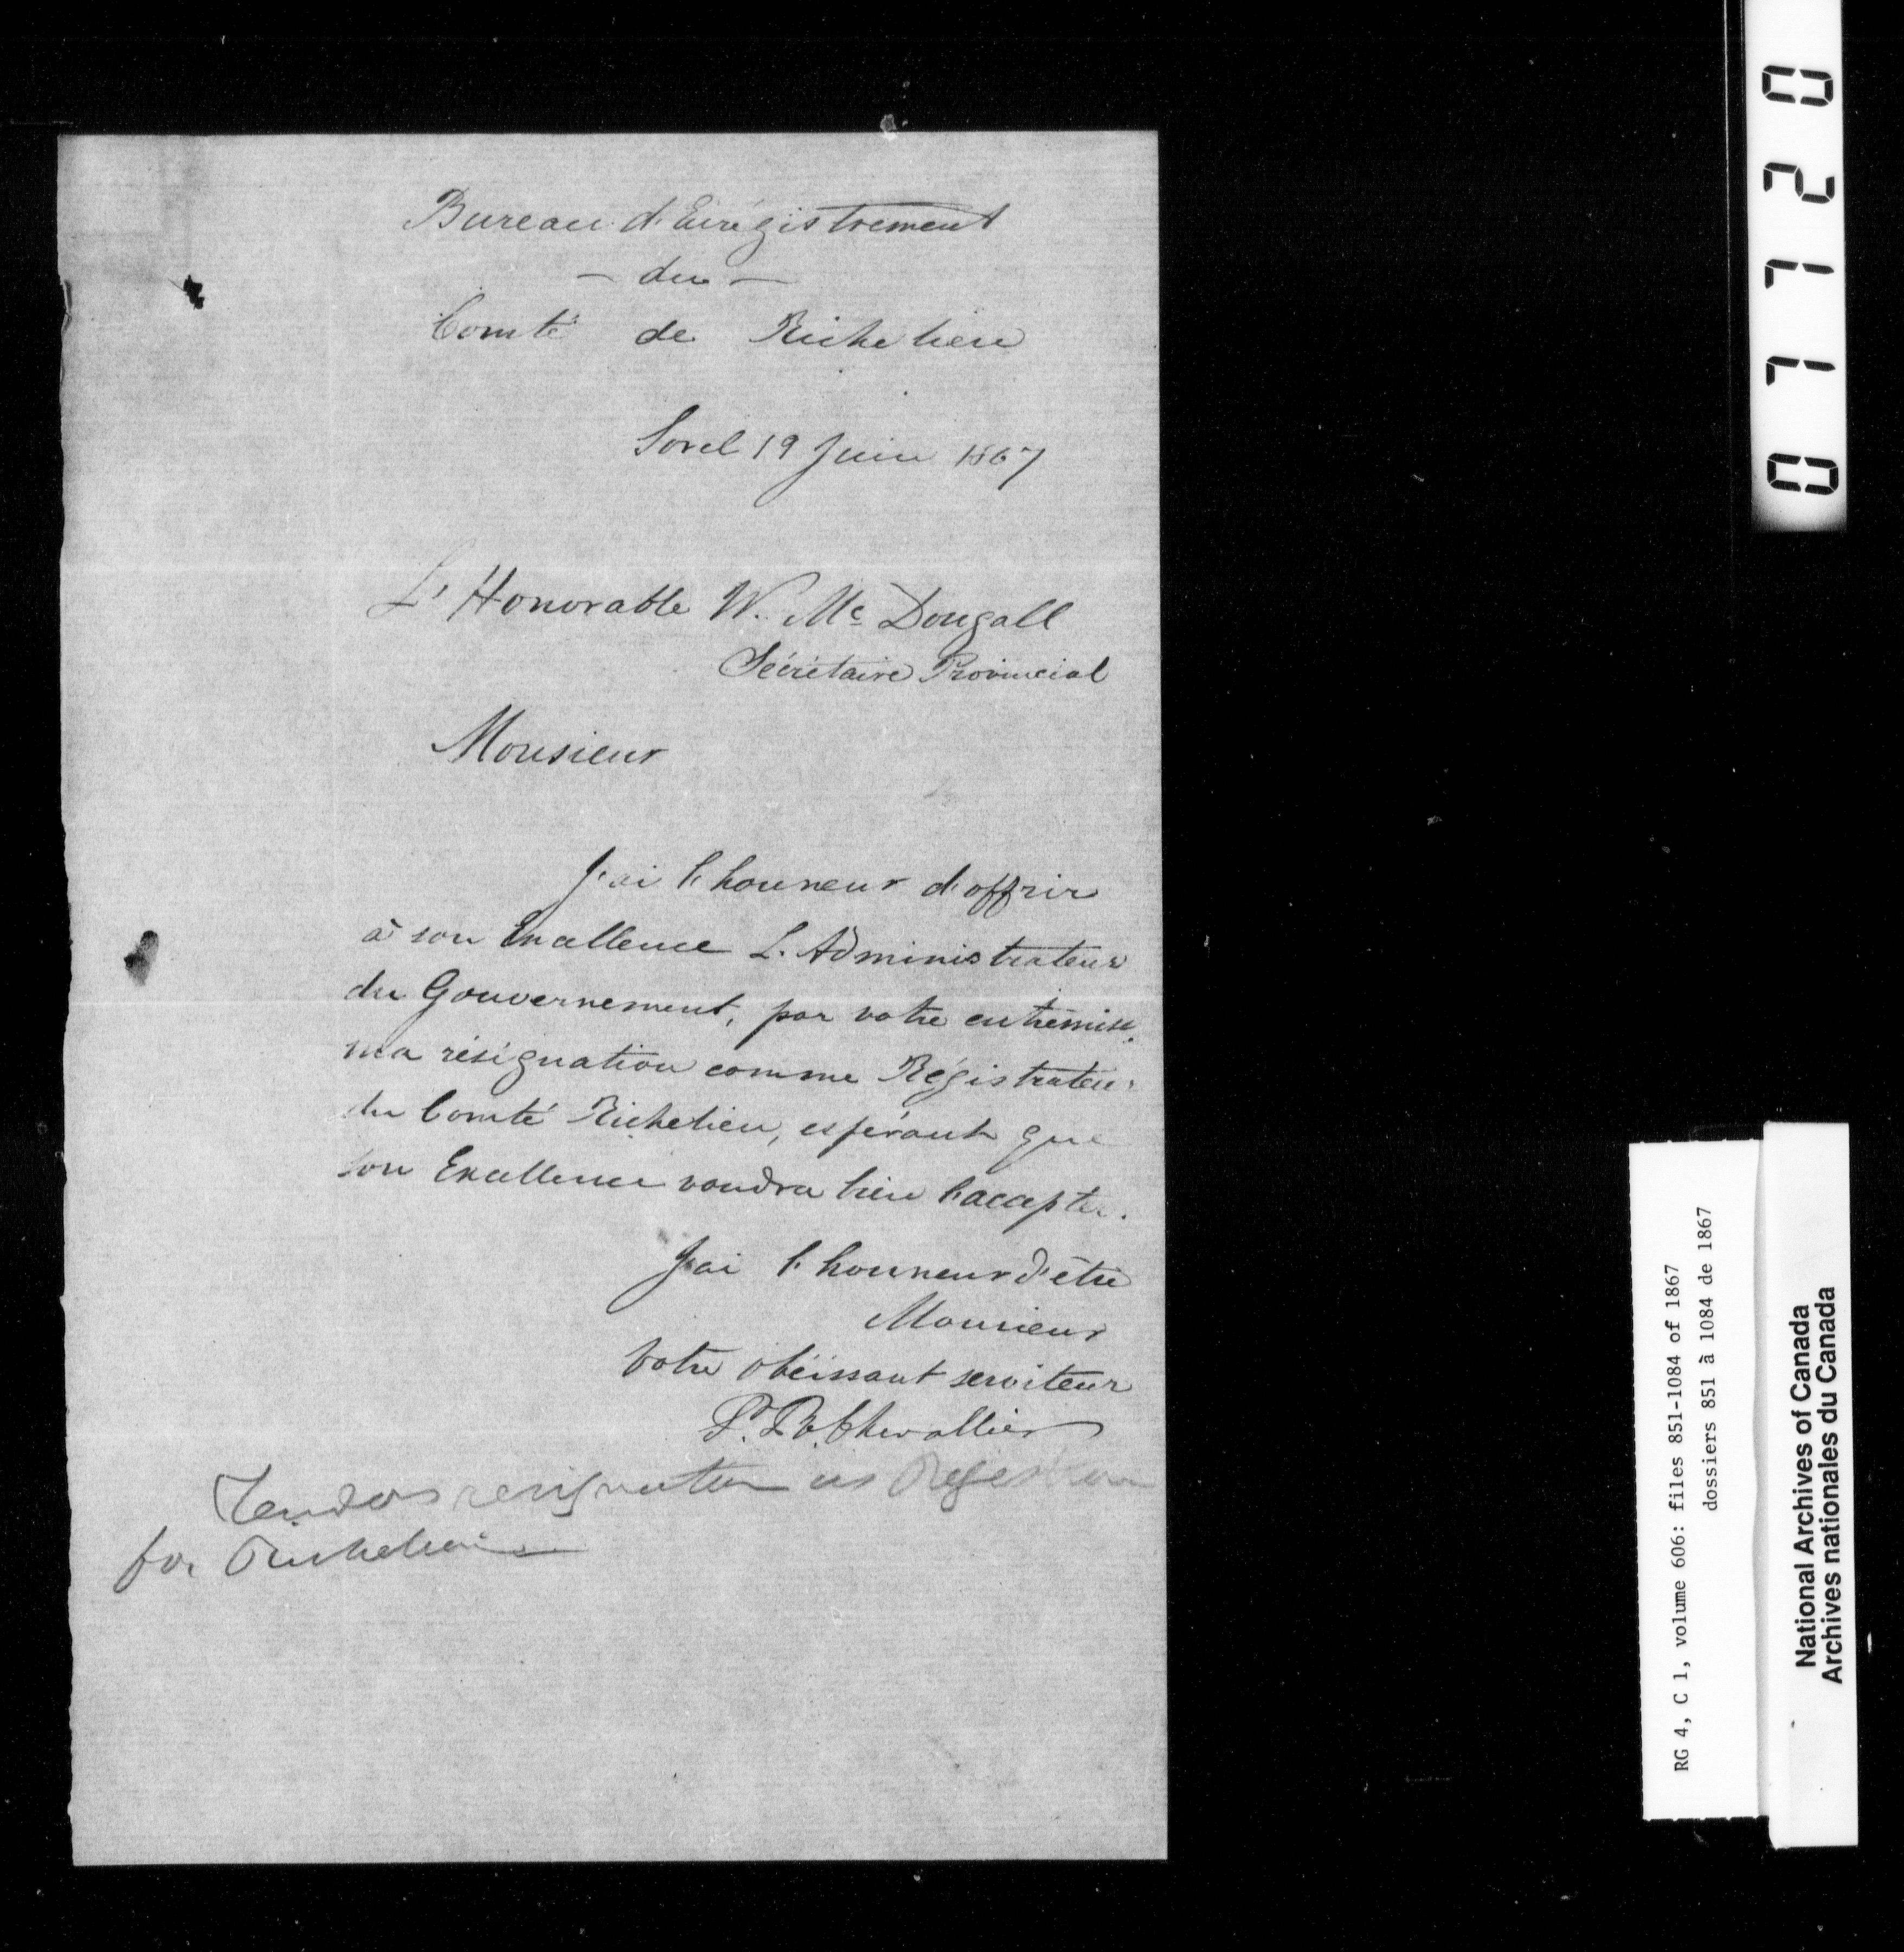 Bureau d'Enrégistrement
— du —
Comté de Richelieu
Sorel 19 Juin 1867
L'Honorable W. Mc Dougall
Sécrétaire Provincial
Monsieur
J'ai l'honneur d'offrir
à son Excellence L'Administrateur
du Gouvernement, par votre entremise,
ma résignation comme Régistrateur
du Comté Richelieu, espérant que
son Excellence voudra bien l'accepter.
J'ai l'honneur d'être
Monsieur
Votre obéissant serviteur
P. R. Chevallier
Tenders resignation as Registrar
for Richelieu
07720
RG 4, C 1, volume 606: files 851-1084 of 1867
dossiers 851 à 1084 de 1867
National Archives of Canada
Archives nationales du Canada